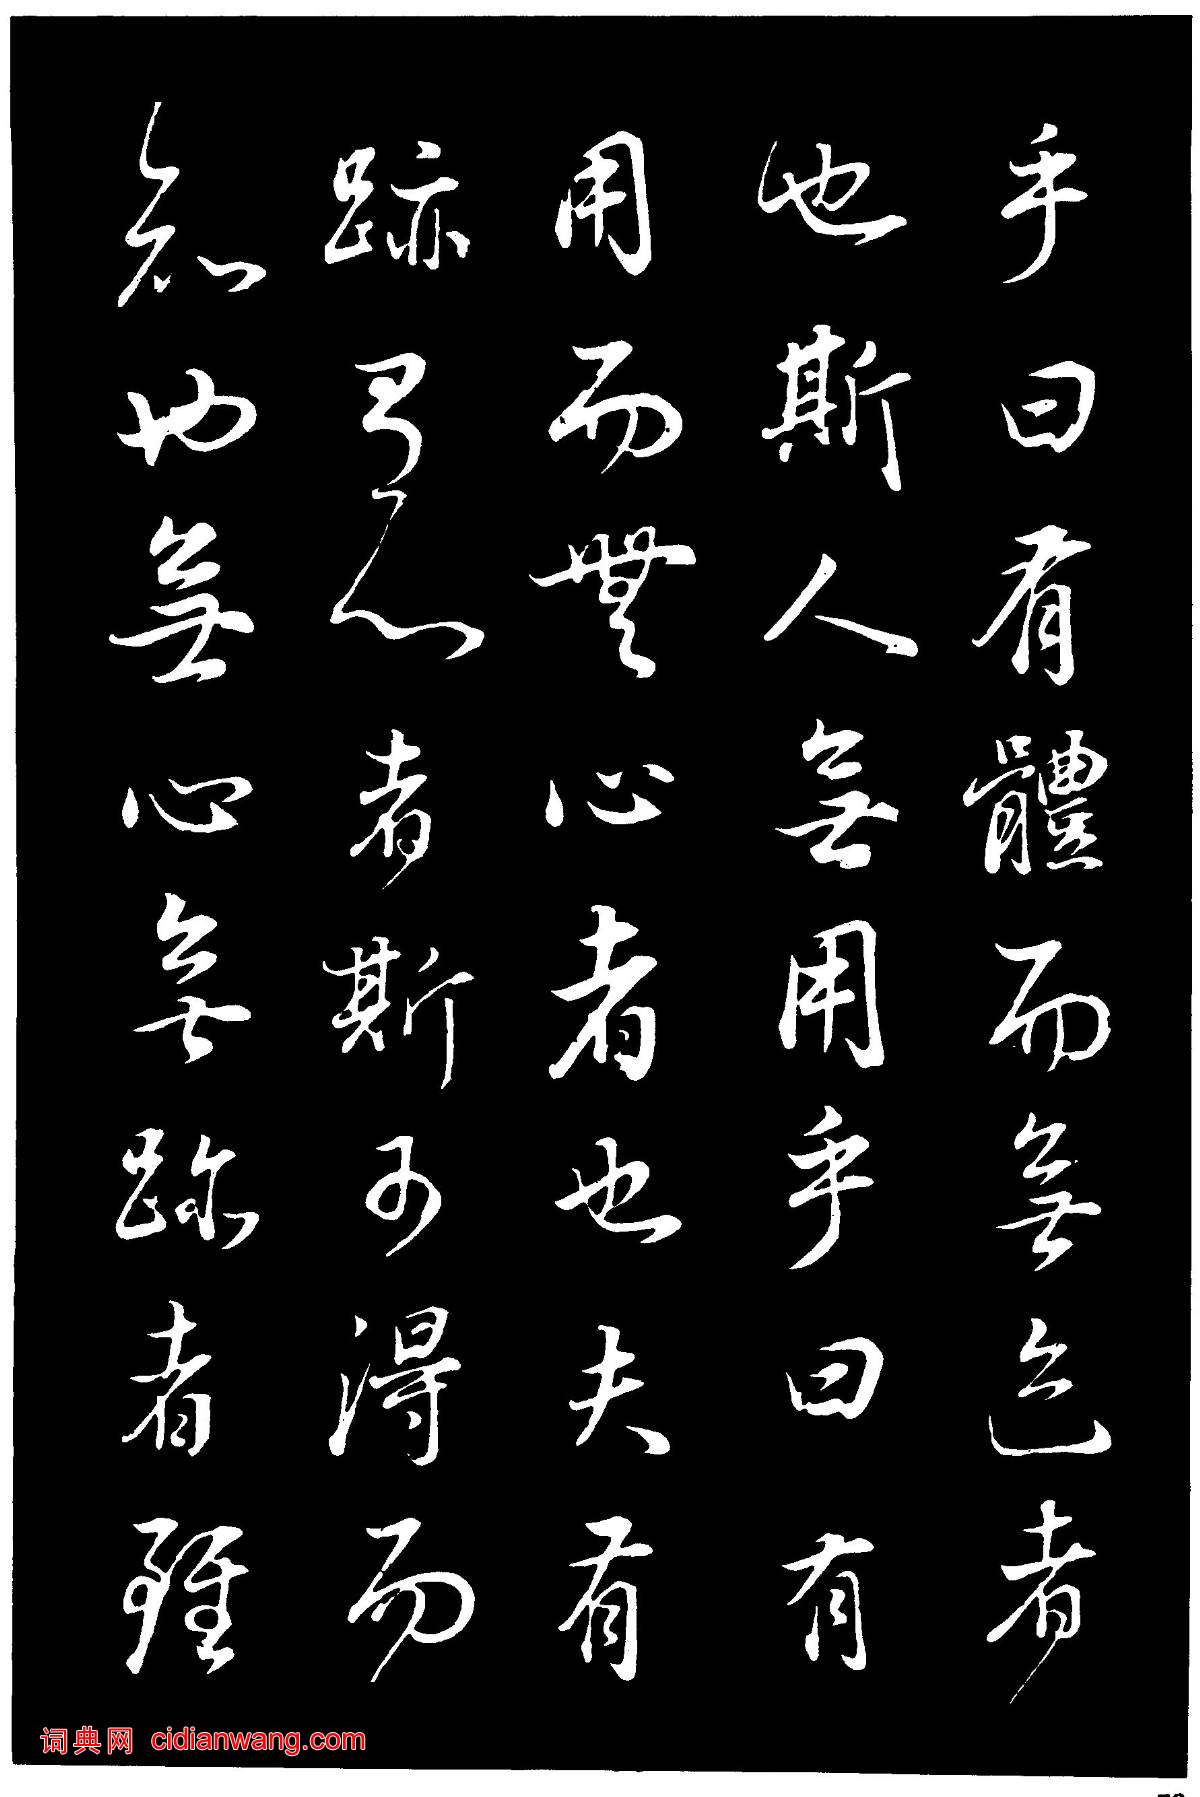 乎曰有體而無色者
也斯人無用乎曰有
用而無心者也夫有
跡有心者斯可得而
知也無心無跡者雖
词典网 cidianwang.com